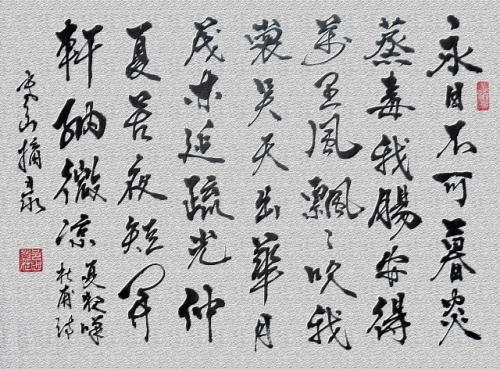 永日不可暮炎
蒸毒我腸安得
萬里風飄〻吹我
裳昊天出華月
茂林延疏光仲
夏苦夜短開
軒納微涼
夏夜嘆
杜甫詩
山摘录